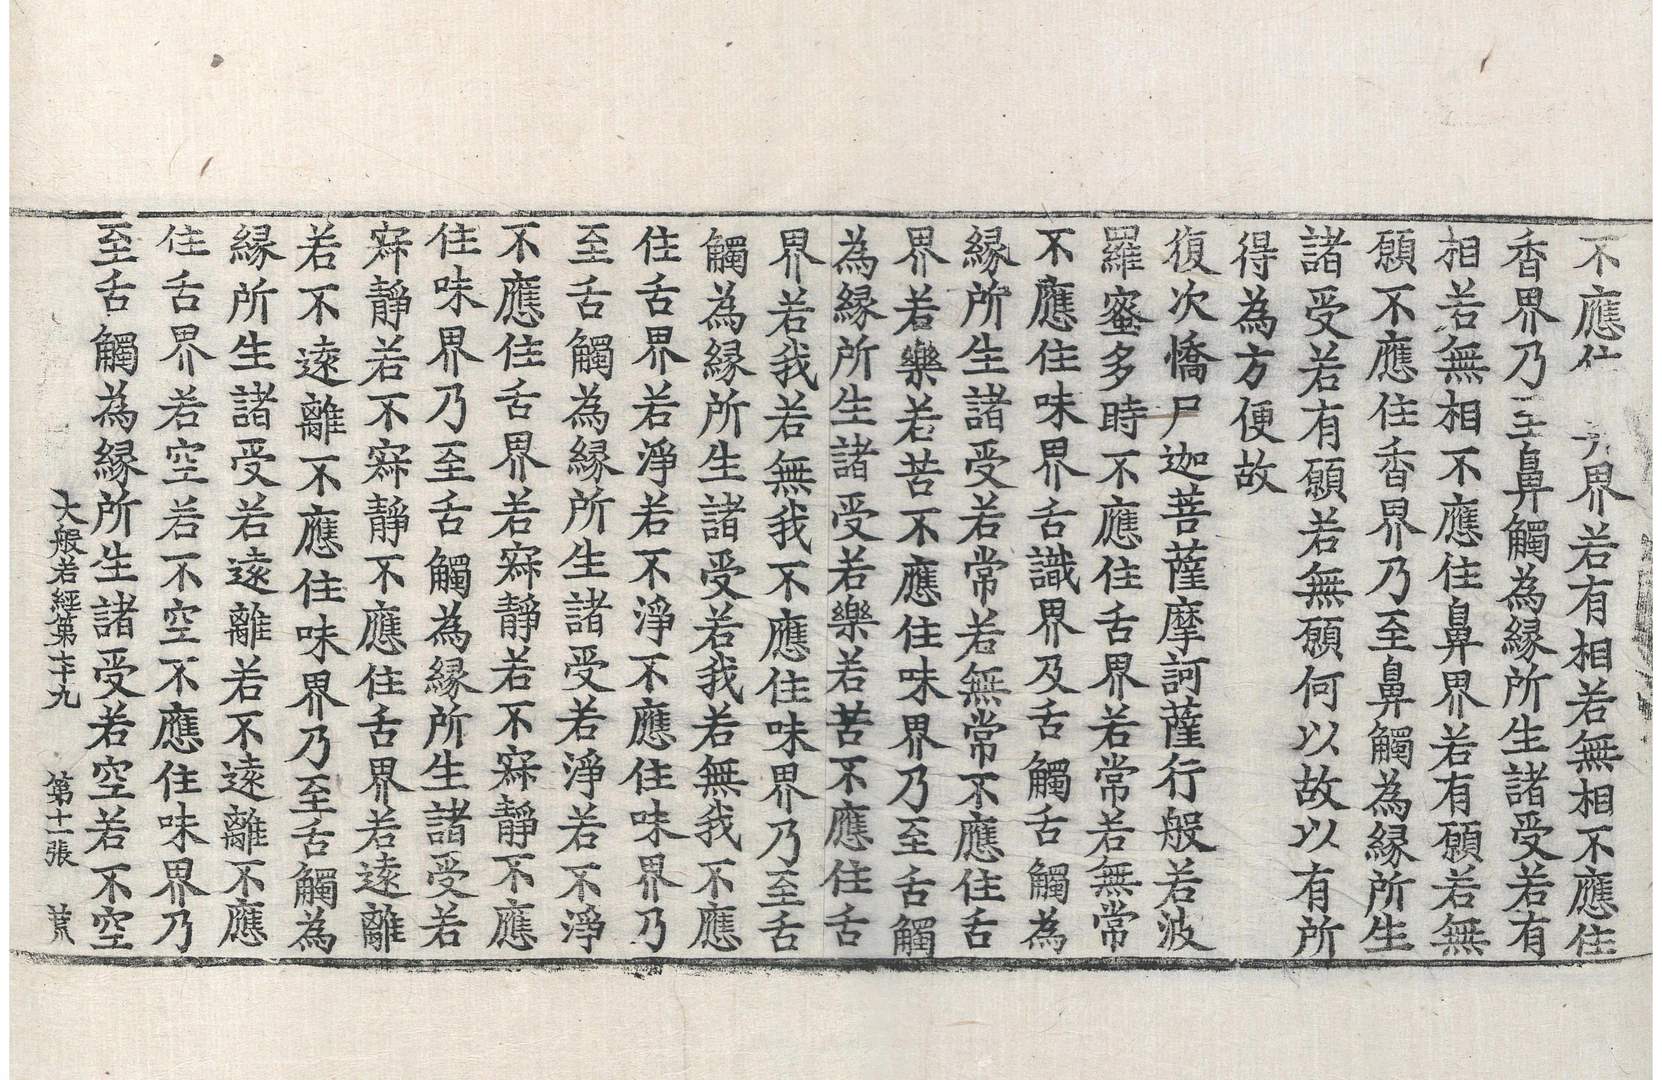 不應住 界若有相若無相不應住
香界乃至鼻觸為緣所生諸受若有
相若無相不應住鼻界若有願若無
願不應住香界乃至鼻觸為緣所生
諸受若有願若無願何以故以有所
得為方便故
復次憍尸迦菩薩摩訶薩行般若波
羅蜜多時不應住舌界若常若無常
不應住味界舌識界及舌觸舌觸為
緣所生諸受若常若無常不應住舌
界若樂若苦不應住味界乃至舌觸
為緣所生諸受若樂若苦不應住舌
界若我若無我不應住味界乃至舌
觸為緣所生諸受若我若無我不應
住舌界若淨若不淨不應住味界乃
至舌觸為緣所生諸受若淨若不淨
不應住舌界若寂靜若不寂靜不應
住味界乃至舌觸為緣所生諸受若
寂靜若不寂靜不應住舌界若遠離
若不遠離不應住味界乃至舌觸為
緣所生諸受若遠離若不遠離不應
住舌界若空若不空不應住味界乃
至舌觸為緣所生諸受若空若不空
大般若經第七十九 第十一張 荒